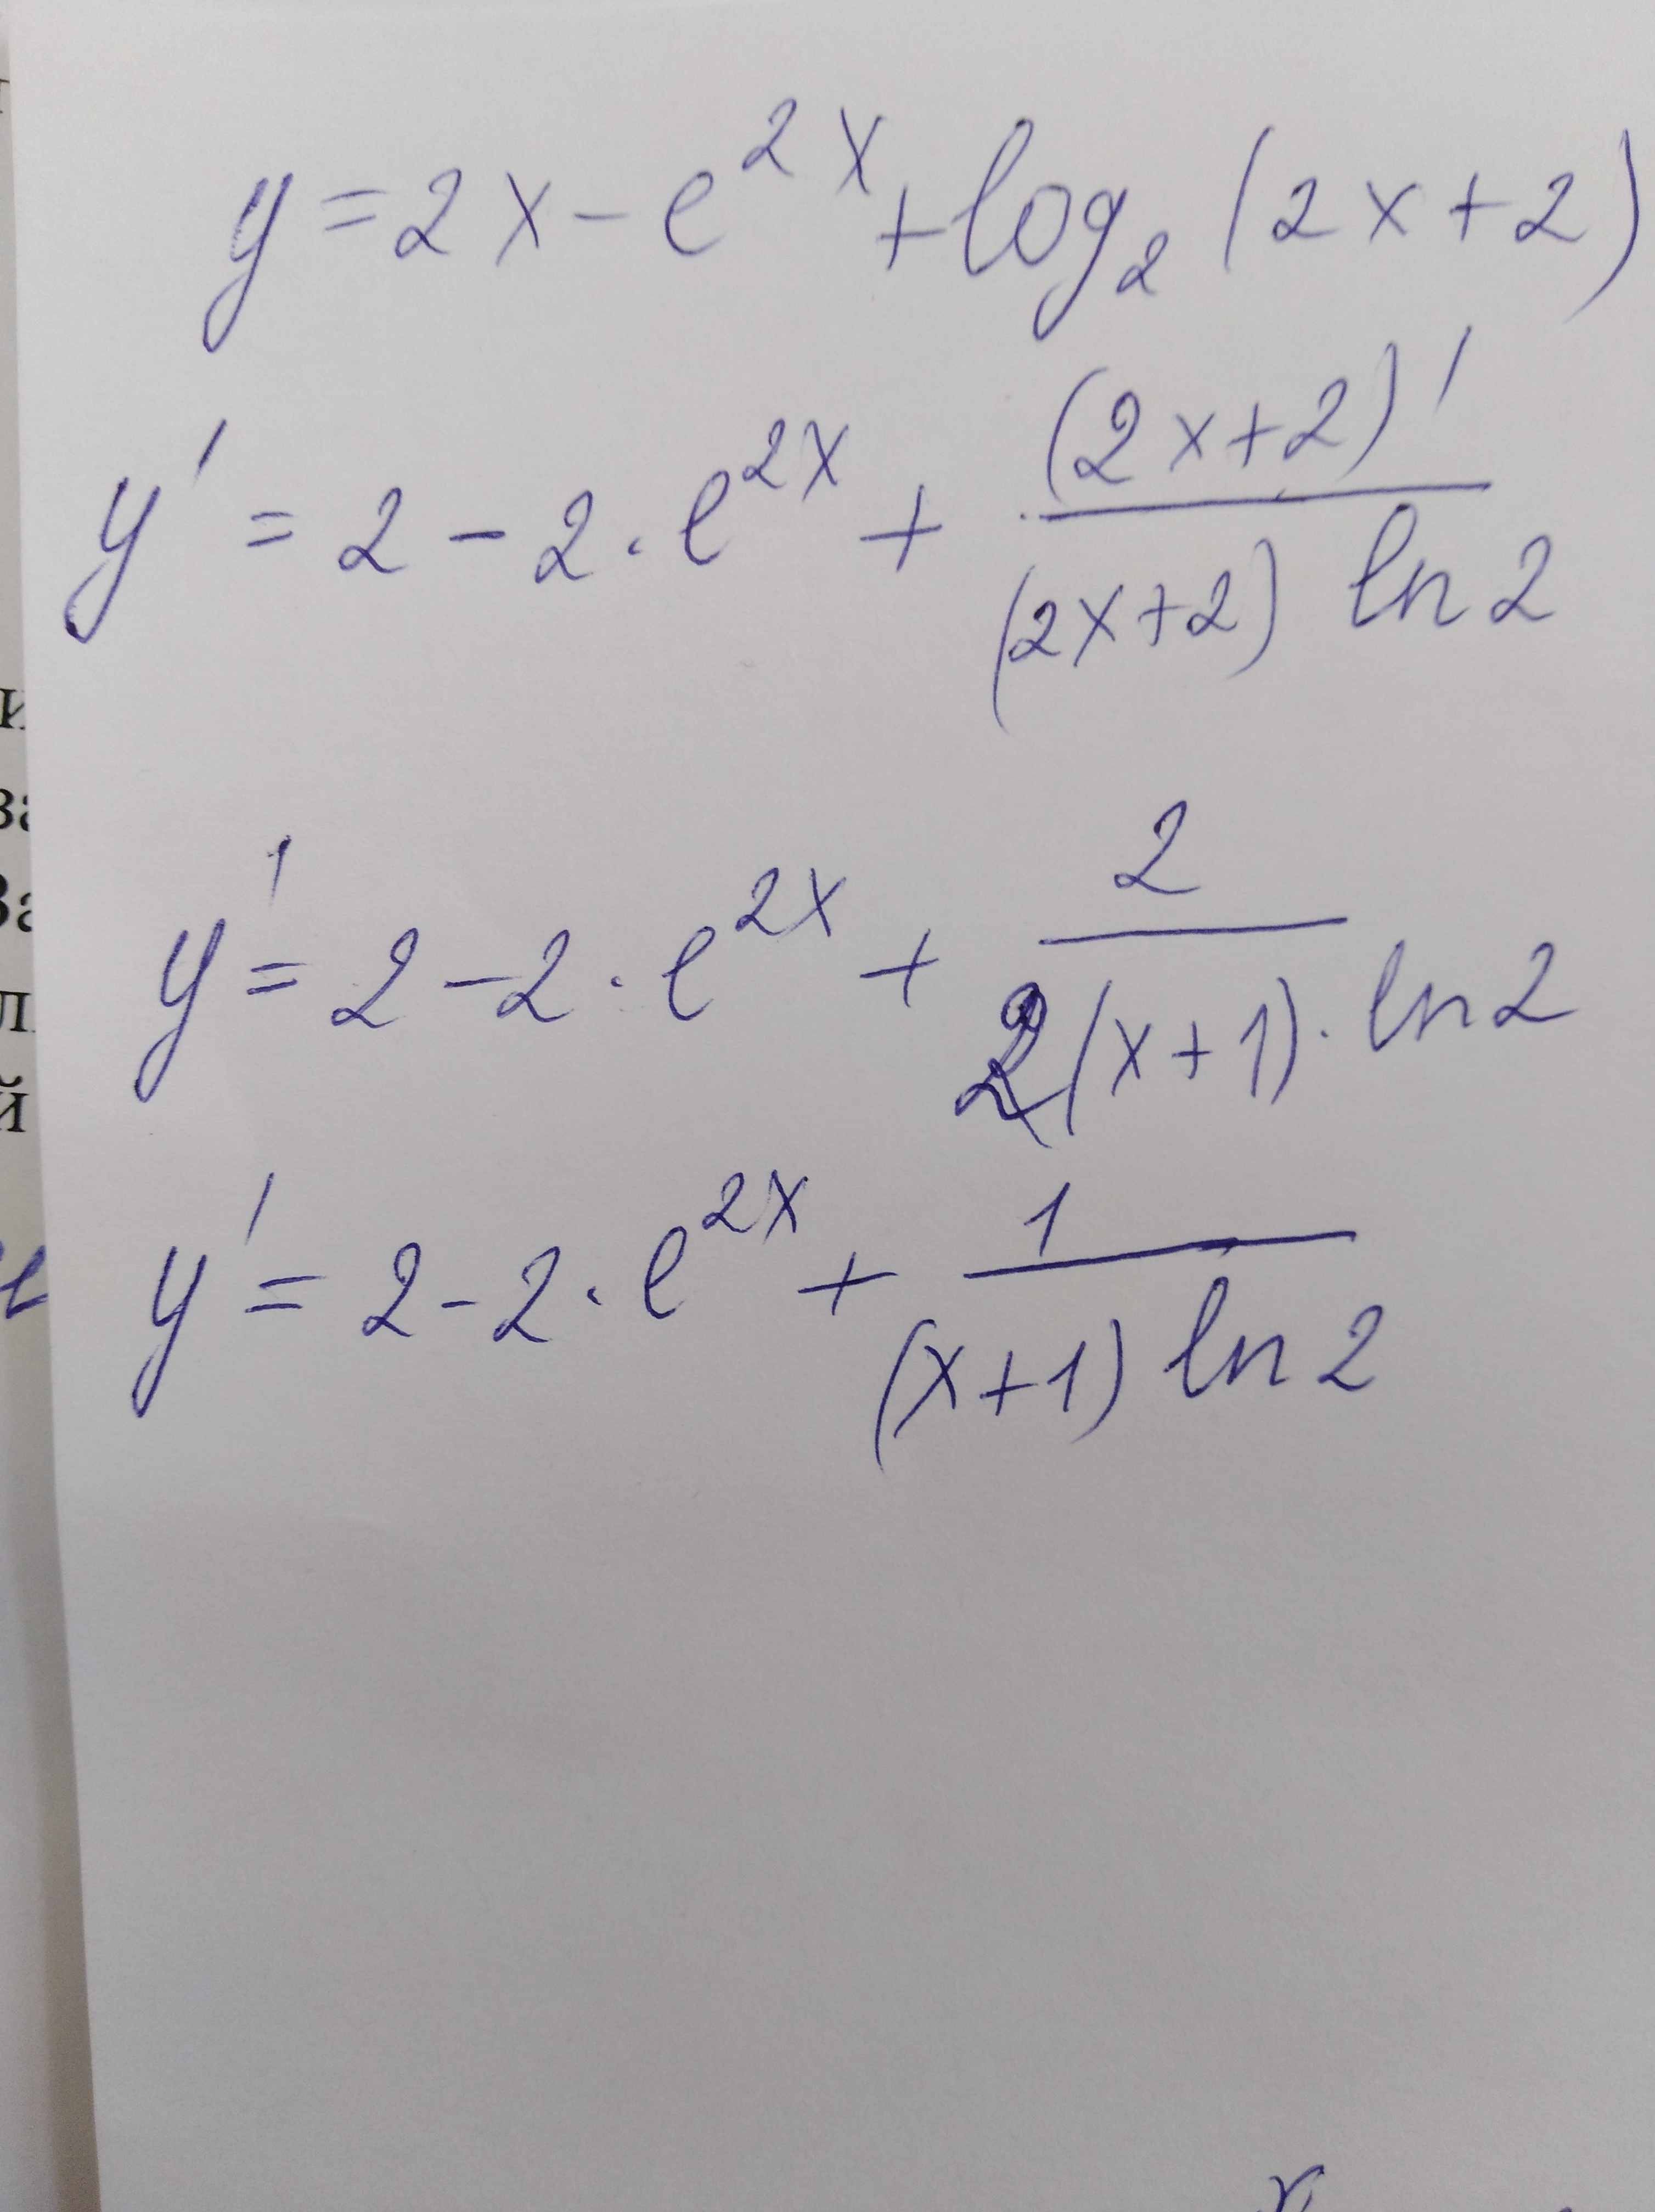 y = 2x - e^{2x} + log_2 (2x+2)
y' = 2 - 2 · e^{2x} + \frac{(2x+2)'}{(2x+2) ln 2}
y' = 2 - 2 · e^{2x} + \frac{2}{2(x+1) · ln 2}
y' = 2 - 2 · e^{2x} + \frac{1}{(x+1) ln 2}